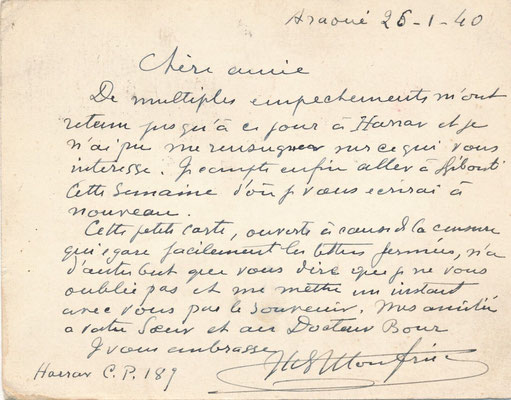 Araoué 26-1-40
Chère amie
De multiples empechements m'ont
retenu jusqu'à ce jour à Harrar et je
n'ai pu me renseigner sur ce qui vous
interesse. Je compte enfin aller à Djibouti
cette semaine d'où je vous ecrirai à
nouveau.
Cette petite carte, ouverte à cause de la censure
qui egare facilement les lettres fermées, n'a
d'autre but que vous dire que je ne vous
oublie pas et me mettre un instant
avec vous par le souvenir. Mes amitiés
a votre Sœur et au Docteur Bour
Je vous embrasse
Harrar C.P. 189